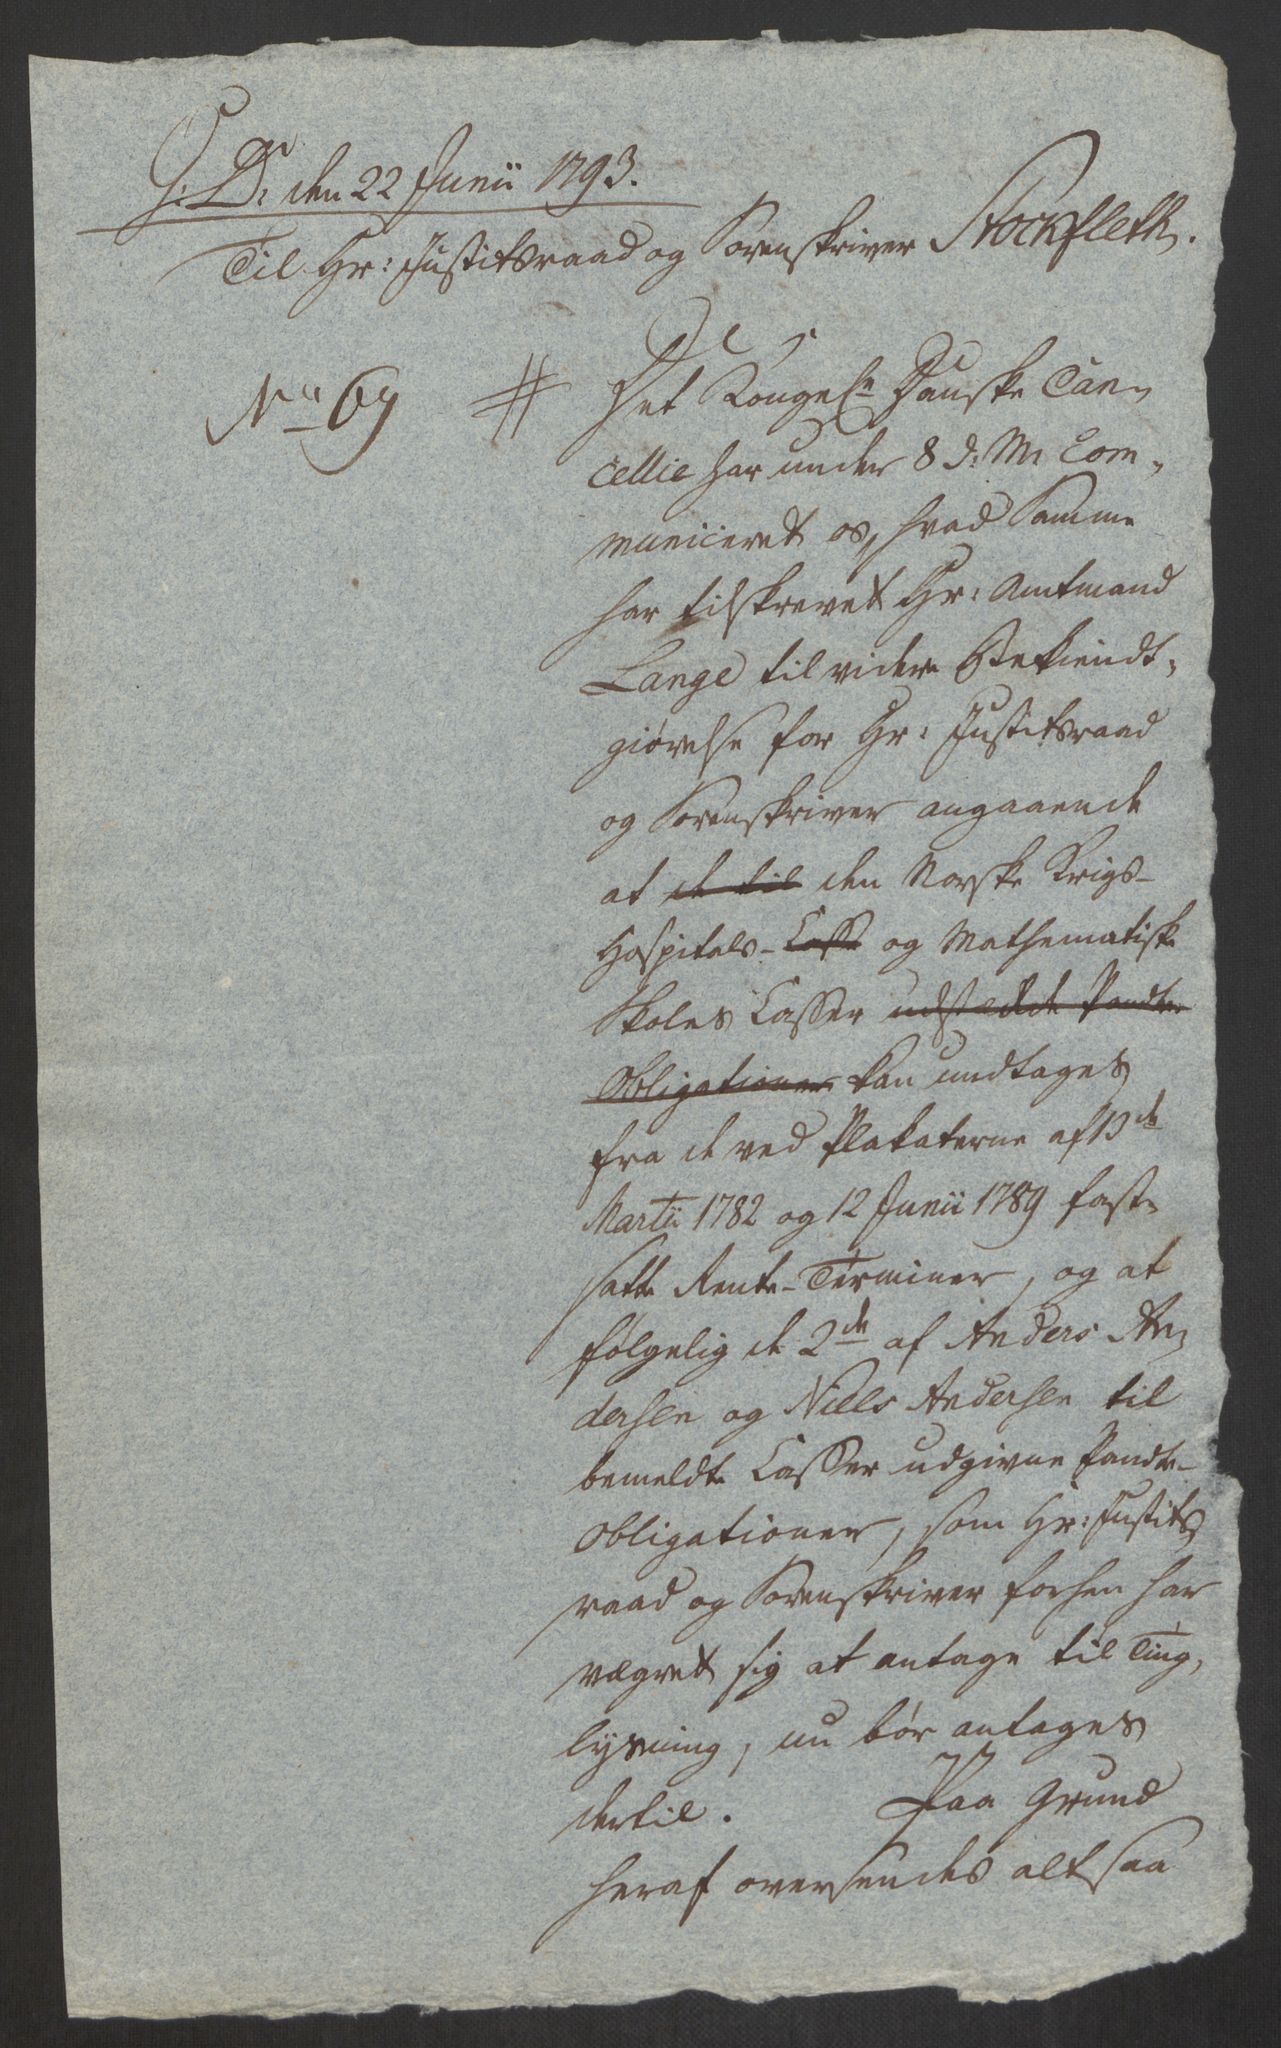 G: D: den 22 Junii 1793.
Til Hr: Justitsraad og Sorenskriver Stockfleth.
No 69 # Det Kongel: Danske Can„
cellie har under 8 d: M: Com„
municeret os, hvad Samme
har tilskrevet Hr: Amtmand
Lange til videre Bekiendt„
giørelse for Hr: Justitsraad
og Sorenskriver angaaende
at de til den Norske Krigs-
Hospitals-Casse og Mathematiske
Skoles Casser udstædde Pandte
Obligationer kan undtages
fra de ved Plakaterne af 13de
Martii 1782 og 12 Junii 1789 fast„
satte Rente-Terminer, og at
følgelig de 2de af Anders An„
dersen og Niels Andersen til
bemeldte Casser udgivne Pandte-
Obligationer, som Hr: Justits
raad og Sorenskriver forhen har
vægret sig at antage til Ting„
lysning, nu bør antages
dertil. Paa Grund
heraf oversendes altsaa